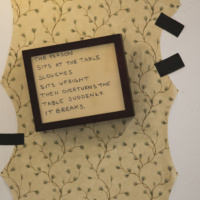 THE PERSON
SITS AT THE TABLE
SLOUCHES
SITS UPRIGHT
THEN OVERTURNS THE
TABLE SUDDENLY
IT BREAKS.